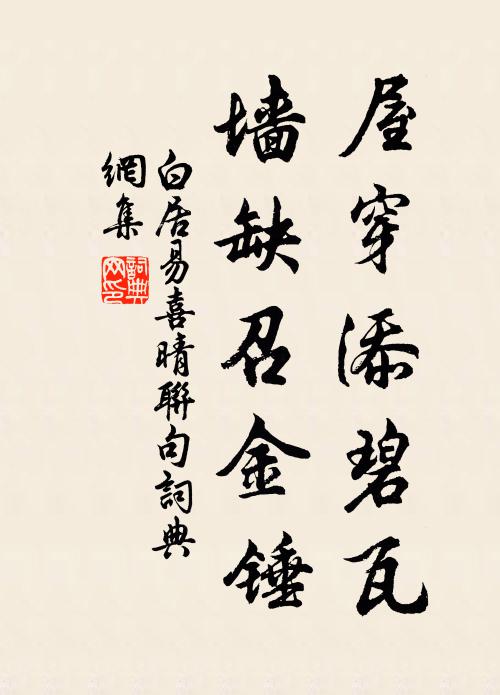 屋穿添碧瓦
墙缺召金锤
白居易喜晴聯句詞典
網集
詞典網印